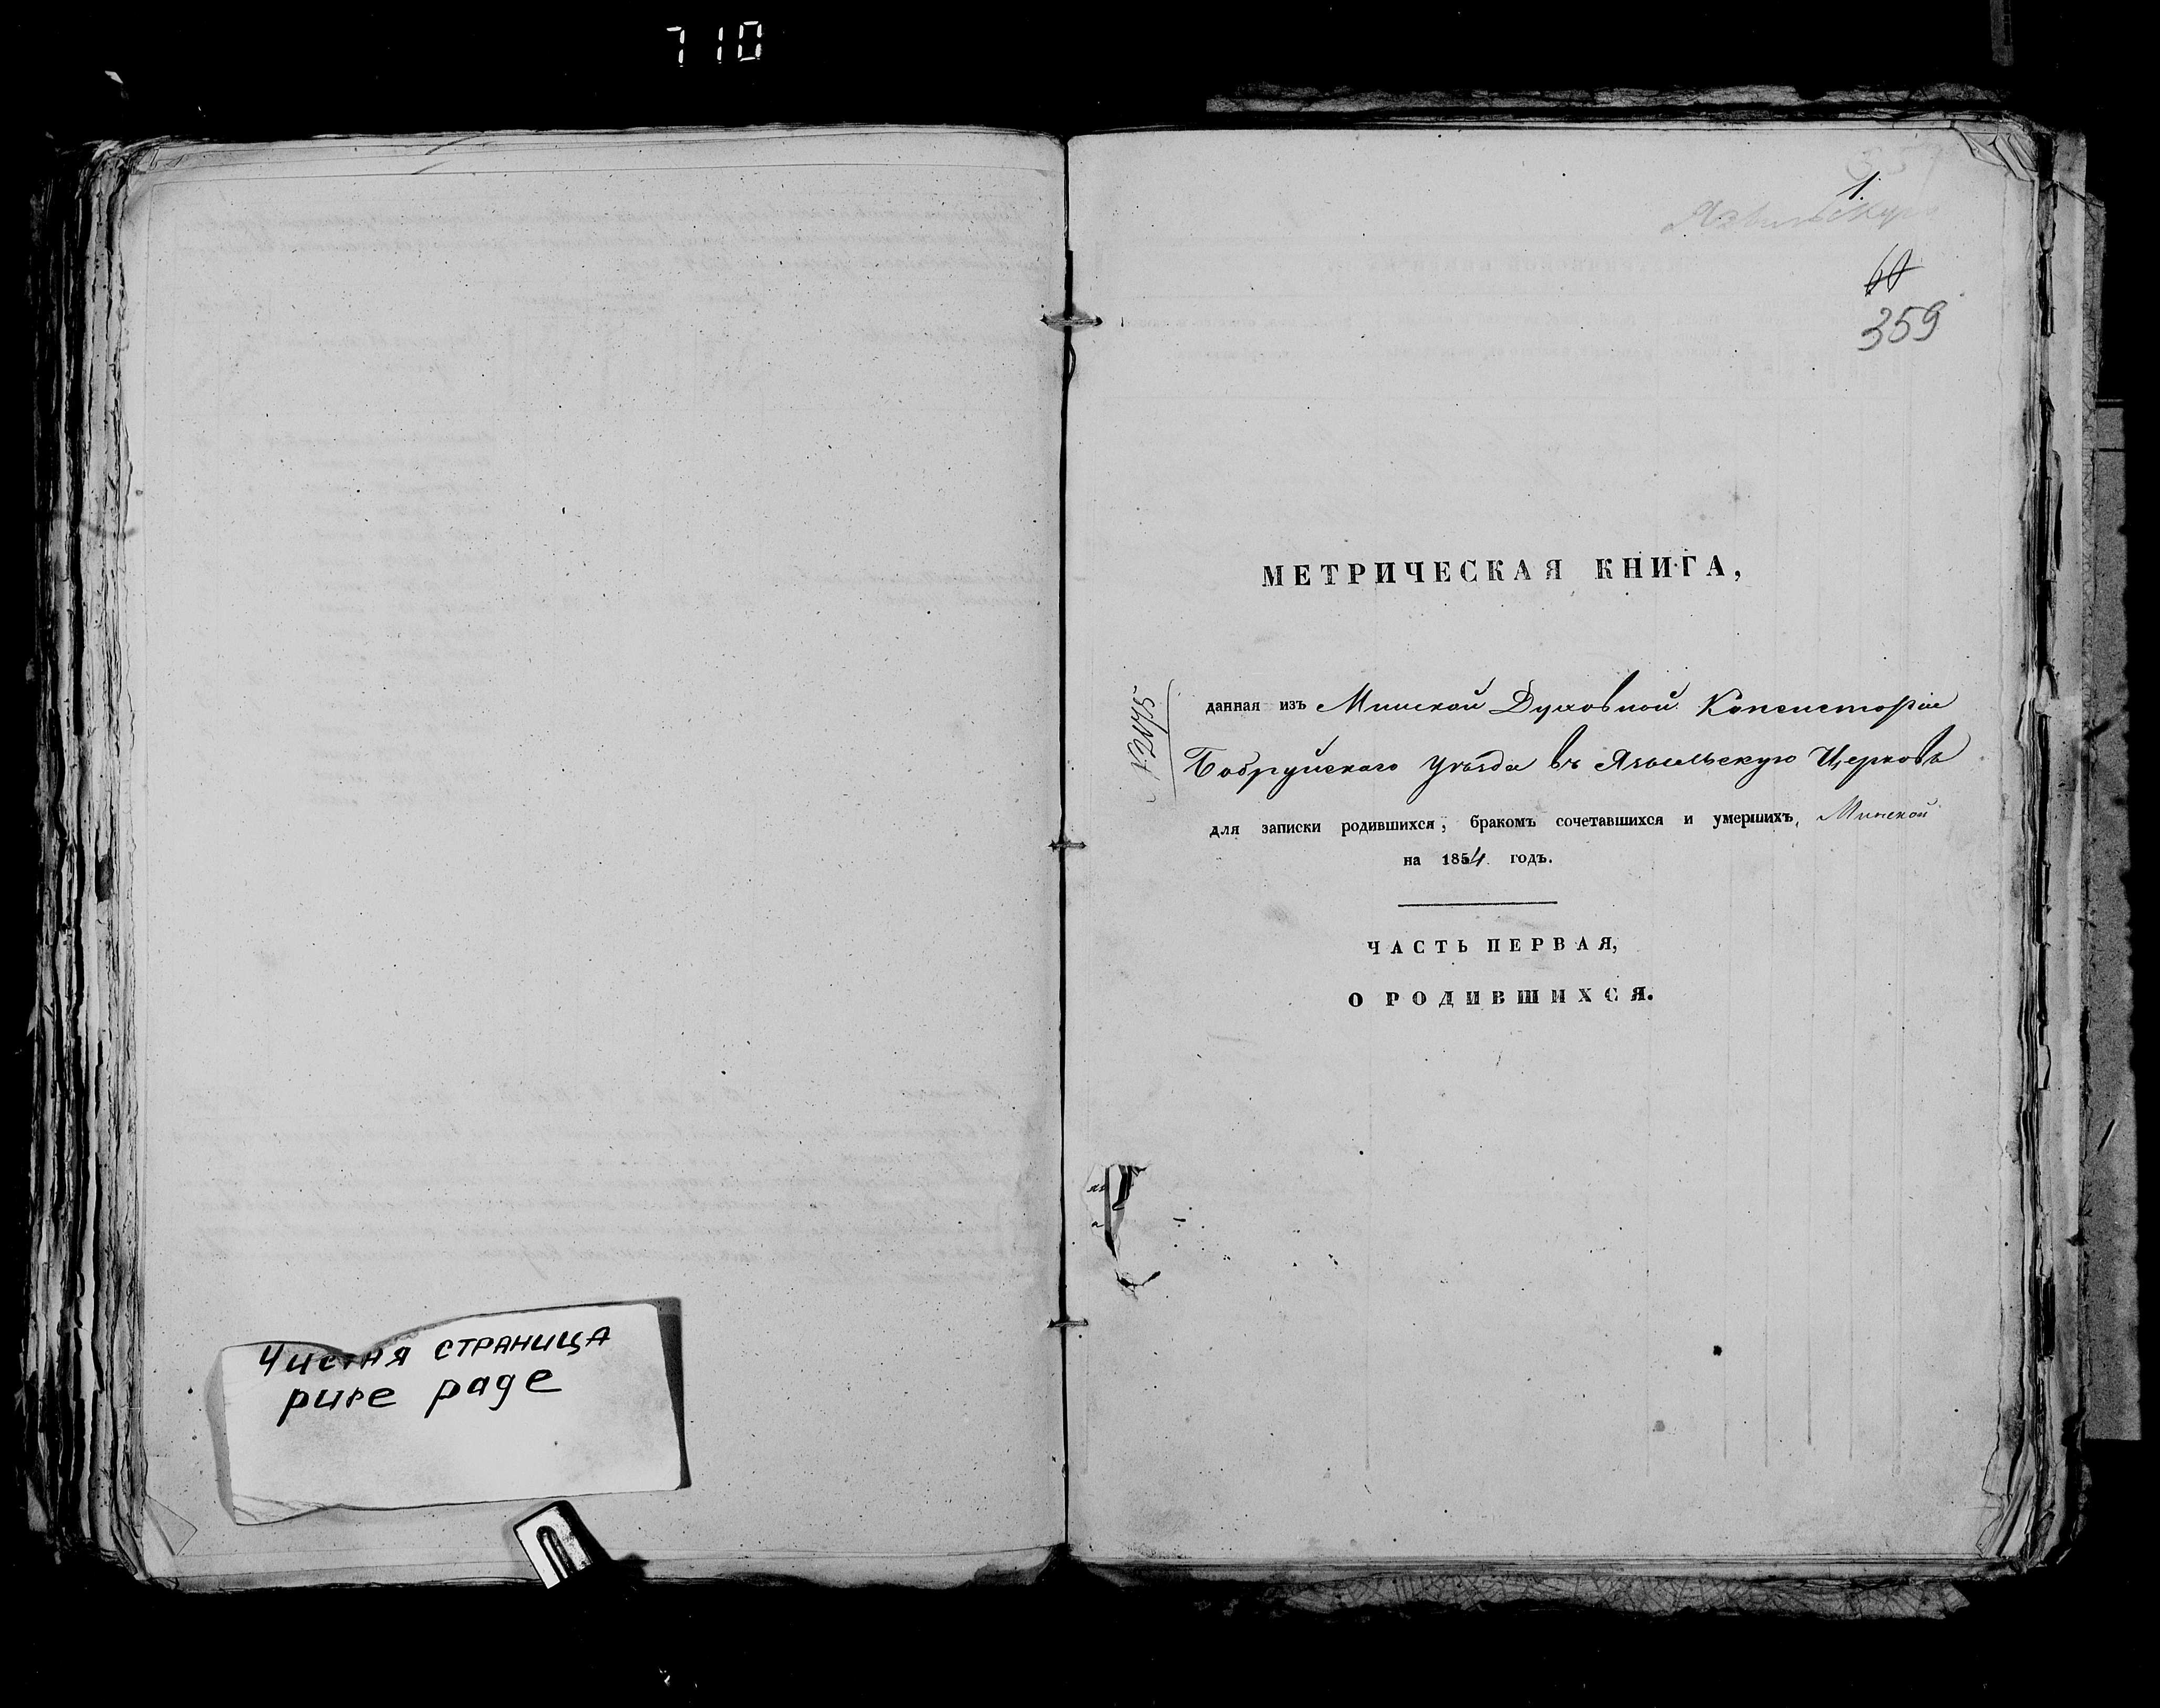 710
Чистая страница
pure page
1.
Язвильскую
60
359
МЕТРИЧЕСКАЯ КНИГА,
№ 2775
данная изъ Минской Духовной Консисторіи
Бобруйскаго уѣзда въ Язвильскую Церковь
для записки родившихся, бракомъ сочетавшихся и умершихъ, Минской
на 1854 годъ.
ЧАСТЬ ПЕРВАЯ,
О РОДИВШИХСЯ.